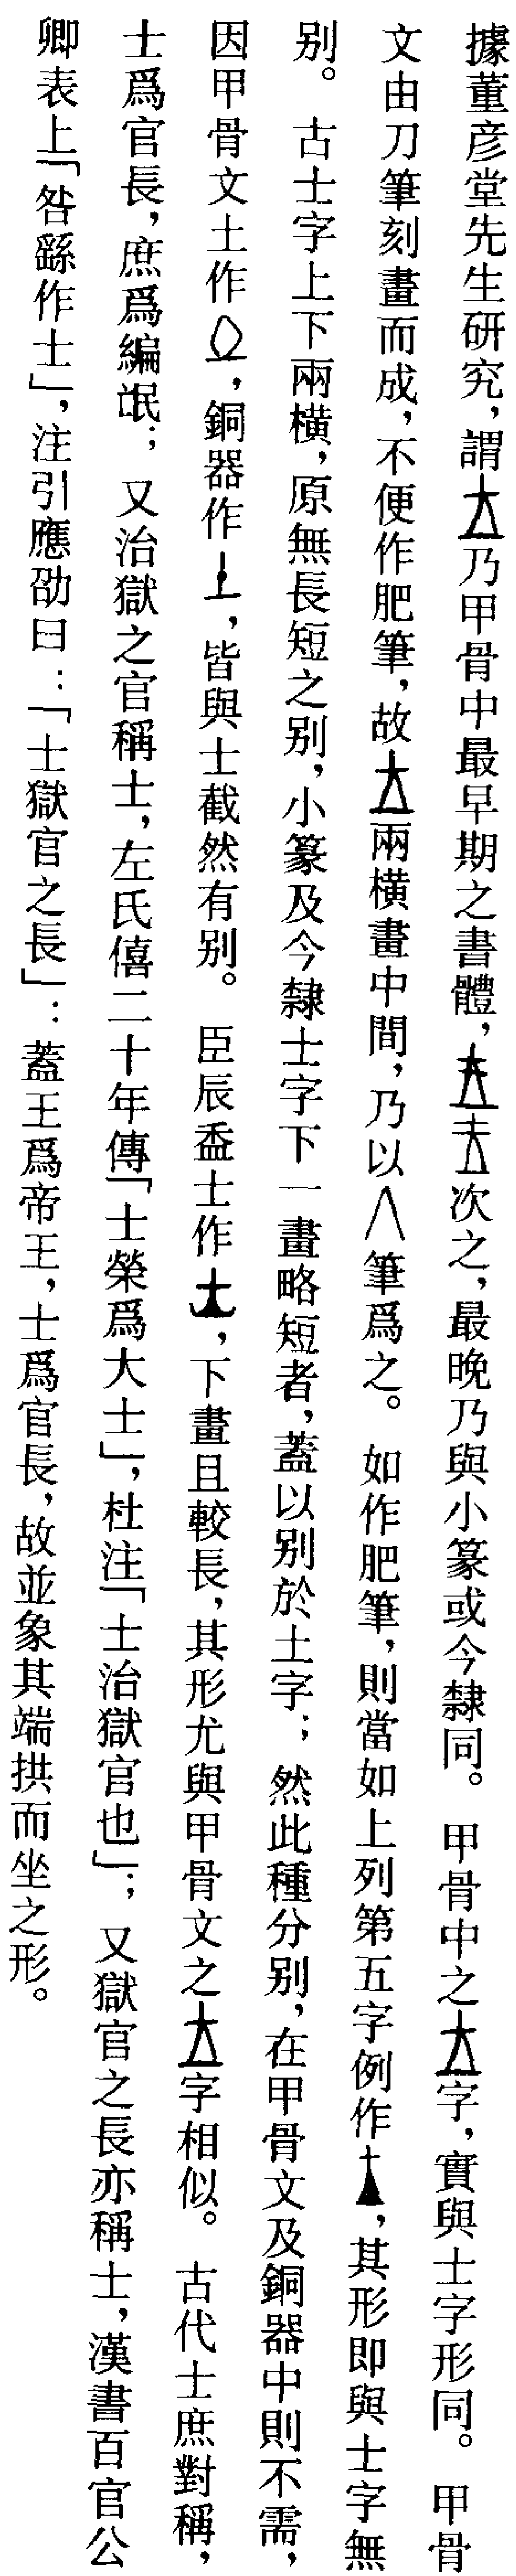 據董彦堂先生硏究，謂乃甲骨中最早期之書體，次之，最晚乃與小篆或今隸同。甲骨中之字，實與士字形同。甲骨
文由刀筆刻畫而成，不便作肥筆，故兩橫畫中間，乃以八筆爲之。如作肥筆，則當如上列第五字例作，其形即與士字無
别。古士字上下兩橫，原無長短之别，小篆及今隸士字下一畫略短者，蓋以别於土字；然此種分别，在甲骨文及銅器中則不需，
因甲骨文土作，銅器作，皆與士截然有别。臣辰盉士作，下畫且較長，其形尤與甲骨文之字相似。古代士庶對稱，
士爲官長，庶爲編氓；又治獄之官稱士，左氏僖二十年傳「士榮爲大士」，杜注「士治獄官也」；又獄官之長亦稱士，漢書百官公
卿表上「咎繇作士」，注引應劭曰：「士獄官之長」：蓋王爲帝王，士爲官長，故並象其端拱而坐之形。